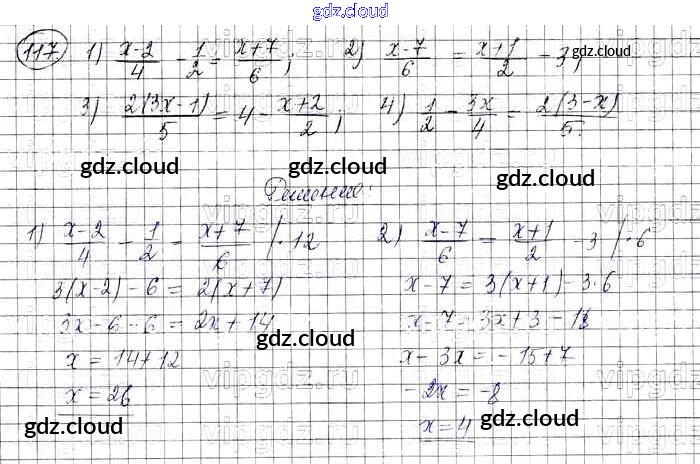 gdz.cloud
117. 1) (x-2)/4 - 1/2 = (x+7)/6; 2) (x-7)/6 = (x+1)/2 - 3;
3) 2(3x-1)/5 = 4 - (x+2)/2; 4) 1/2 - 3x/4 = 2(3-x)/5.
gdz.cloud gdz.cloud gdz.cloud
Решение:
1) (x-2)/4 - 1/2 = (x+7)/6 /·12
3(x-2) - 6 = 2(x+7)
3x - 6 - 6 = 2x + 14
x = 14 + 12
x = 26
2) (x-7)/6 = (x+1)/2 - 3 /·6
x - 7 = 3(x+1) - 3·6
x - 7 = 3x + 3 - 18
x - 3x = -15 + 7
-2x = -8
x = 4
gdz.cloud gdz.cloud
gdz.cloud gdz.cloud
gdz.cloud gdz.cloud
vipgdz.ru